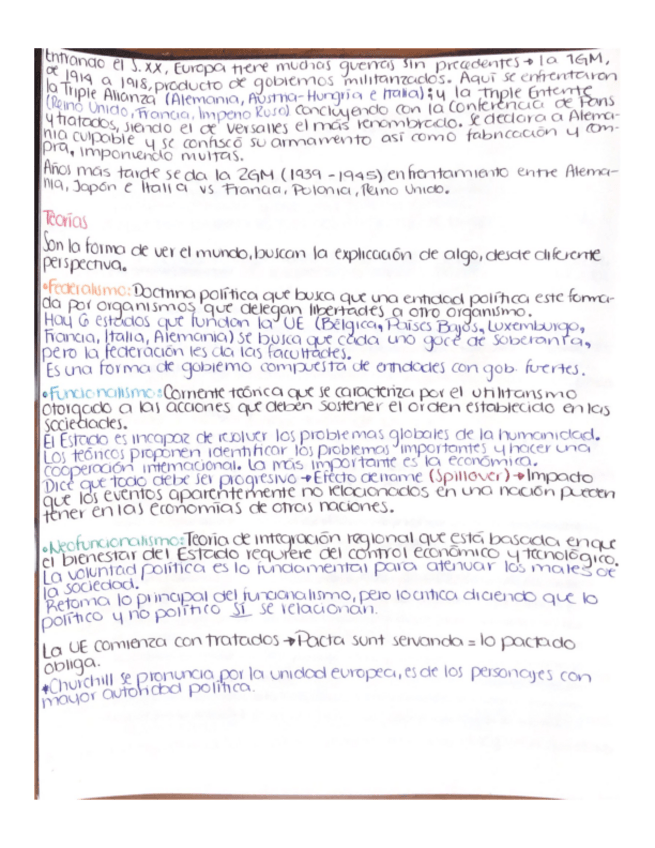 Entrando el S.XX, Europa tiene muchas guerras sin precedentes → la 1GM,
de 1914 a 1918, producto de gobiernos militarizados. Aquí se enfrentaron
la Triple Alianza (Alemania, Austria-Hungría e Italia); y la Triple Entente
(Reino Unido, Francia, Imperio Ruso) concluyendo con la Conferencia de París
y tratados, siendo el de Versalles el más renombrado. Se declara a Alema-
nia culpable y se confiscó su armamento así como fabricación y com-
pra, imponiendo multas.
Años más tarde se da la 2GM (1939 - 1945) enfrentamiento entre Alema-
nia, Japón e Italia vs Francia, Polonia, Reino Unido.
Teorías
Son la forma de ver el mundo, buscan la explicación de algo, desde diferente
perspectiva.
•Federalismo: Doctrina política que busca que una entidad política este forma-
da por organismos que delegan libertades a otro organismo.
Hay 6 estados que fundan la UE (Bélgica, Países Bajos, Luxemburgo,
Francia, Italia, Alemania) se busca que cada uno goce de soberanía,
pero la federación les da las facultades.
Es una forma de gobierno compuesta de entidades con gob. fuertes.
•Funcionalismo: Corriente teórica que se caracteriza por el utilitarismo
otorgado a las acciones que deben sostener el orden establecido en las
sociedades.
El Estado es incapaz de resolver los problemas globales de la humanidad.
Los teóricos proponen identificar los problemas importantes y hacer una
cooperación internacional. La más importante es la económica.
Dice que todo debe ser progresivo → Efecto derrame (Spillover) → Impacto
que los eventos aparentemente no relacionados en una nación pueden
tener en las economías de otras naciones.
•Neofuncionalismo: Teoría de integración regional que está basada en que
el bienestar del Estado requiere del control económico y tecnológico.
La voluntad política es lo fundamental para atenuar los males de
la sociedad.
Retoma lo principal del funcionalismo, pero lo critica diciendo que lo
político y no político SÍ se relacionan.
La UE comienza con tratados → Pacta sunt servanda = lo pactado
obliga.
•Churchill se pronuncia por la unidad europea, es de los personajes con
mayor autoridad política.